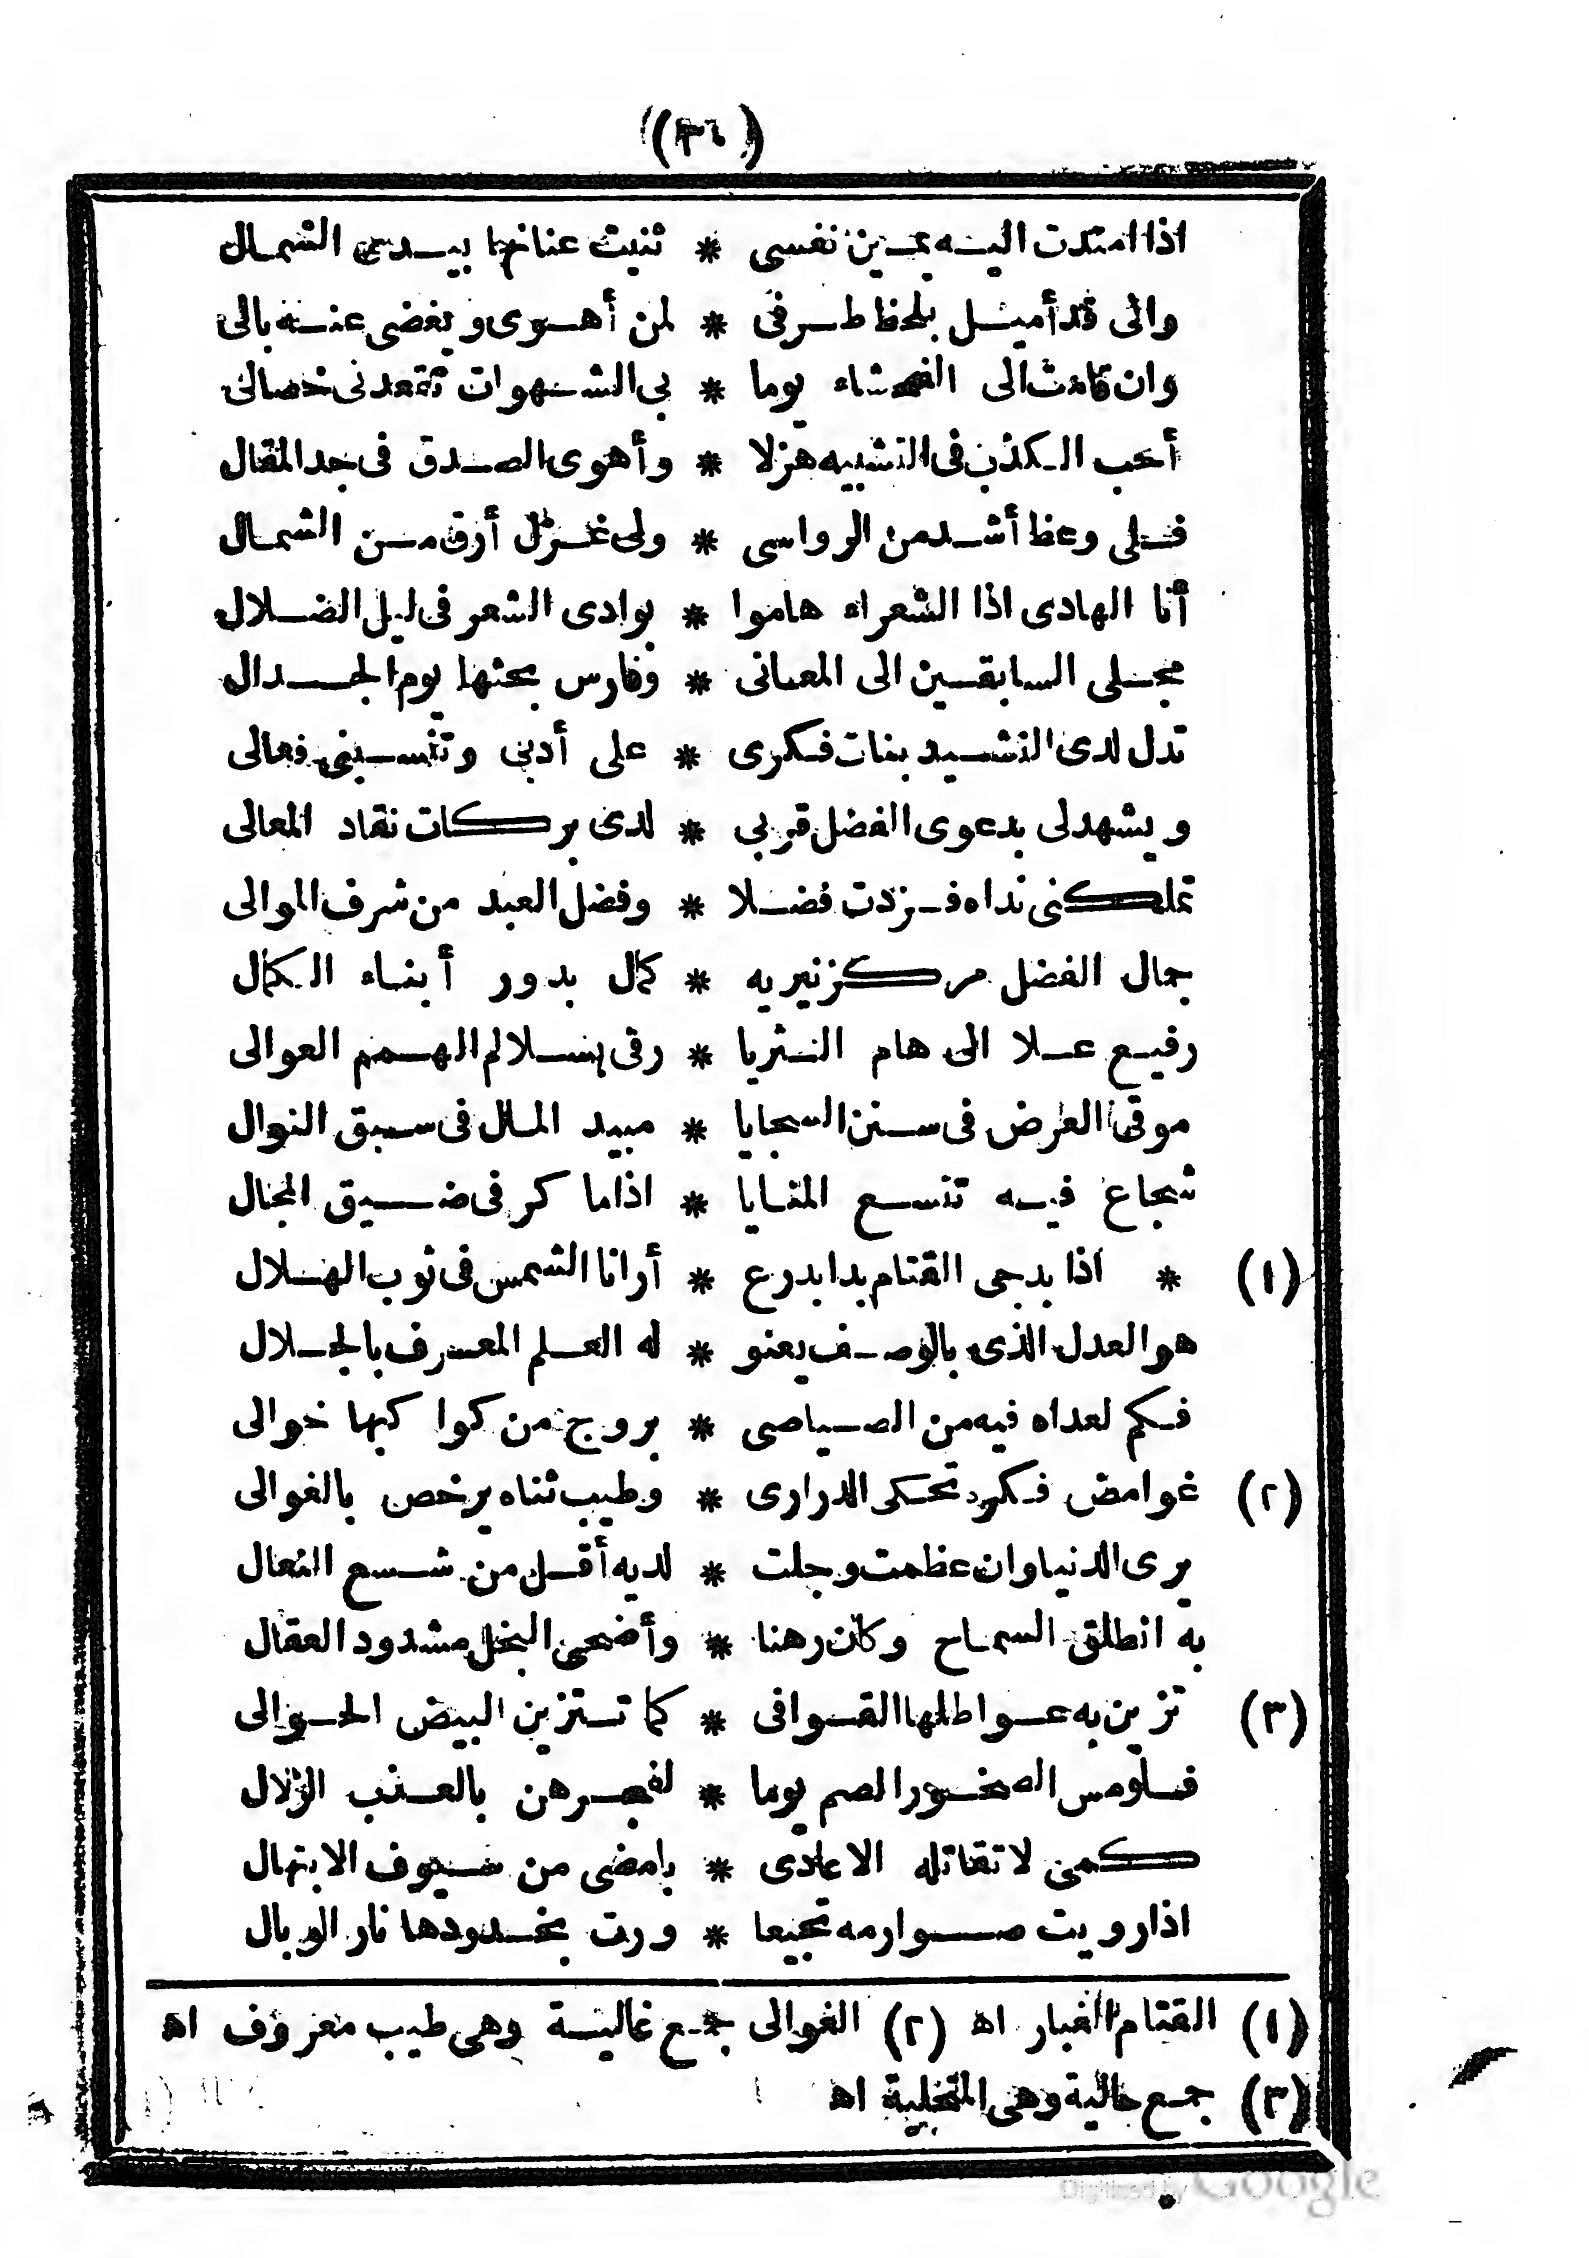 (٣٦)
اذا امتدت اليه يمين نفسى * ثنيت عنانها بيدى الشمال
وانى قد أميل بلحظ طرفى * لمن أهوى ويغضى عنه بالى
وان قامت الى الفحشاء يوما * بى الشهوات تقعدنى خصالى
أحب الكذب فى التشبيه هزلا * وأهوى الصدق فى جد المقال
فلى وعظ أشد من الرواسى * ولى غزل أرق من الشمال
أنا الهادى اذا الشعراء هاموا * بوادى الشعر فى ليل الضلال
مجلى السابقين الى المعانى * وفارس بحثها يوم الجدال
تدل لدى النشيد بنات فكرى * على أدبى وتنسبنى فعالى
ويشهد لى بدعوى الفضل قربى * لدى بركات نقاد المعالى
تملكنى نداه فزدت فضلا * وفضل العبد من شرف الموالى
جمال الفضل مركز نيريه * كمال بدور أبناء الكمال
رفيع علا الى هام الثريا * رقى بسلالم الهمم العوالى
موقى العرض فى سنن السجايا * مبيد المال فى سبق النوال
شجاع فيه تتسع المنايا * اذا ما كر فى ضيق المجال
(١) * اذا بدجى القتام بدا بدرع * أرانا الشمس فى ثوب الهلال
هو العدل الذى بالوصف يعنو * له العلم المعرف بالجلال
فكم لعداه فيه من الصياصى * بروج من كواكبها خوالى
(٢) غوامض فكره تحكى الدرارى * وطيب ثناه يرخص بالغوالى
يرى الدنيا وان عظمت وجلت * لديه أقل من شسع النعال
به انطلق السماح وكان رهنا * وأضحى البخل مشدود العقال
(٣) تزين به عواطلها القوافى * كما تستزين البيض الحوالى
فلو مس الصخور الصم يوما * لفجرهن بالعذب الزلال
كمى لا تقاتله الاعادى * بامضى من سيوف الابتهال
اذا رويت صوارمه نجيعا * ورت بخدودها نار الوبال
(١) القتام الغبار اه (٢) الغوالى جمع غالية وهى طيب معروف اه
(٣) جمع حالية وهى المتحلية اه
Digitized by Google